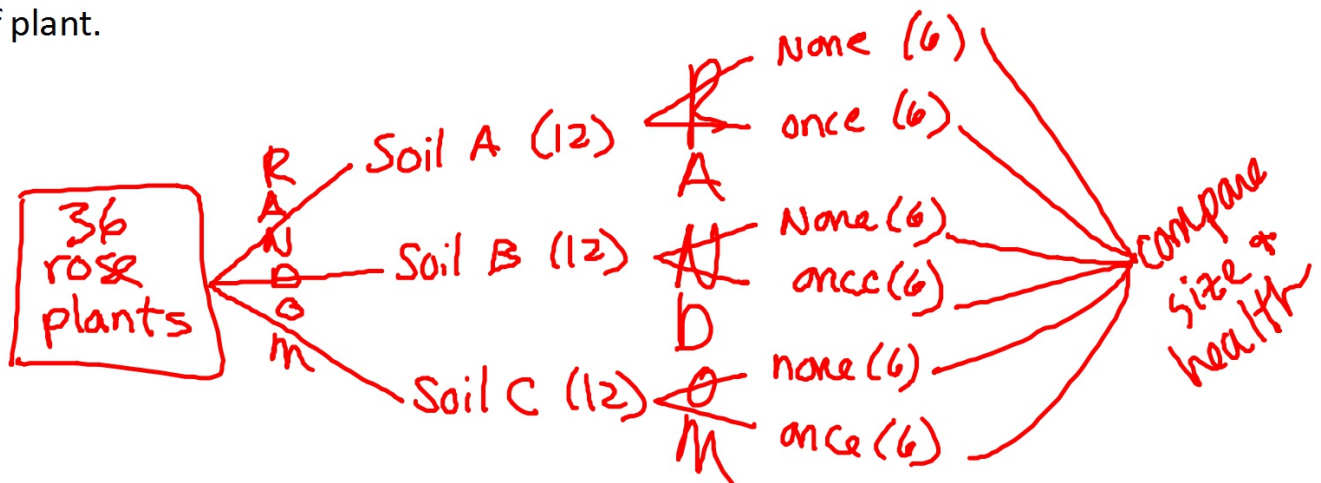 f plant.
36
rose
plants
RANDOM
Soil A (12)
Soil B (12)
Soil C (12)
RANDOM
None (6)
once (6)
None (6)
once (6)
none (6)
once (6)
compare
size &
health